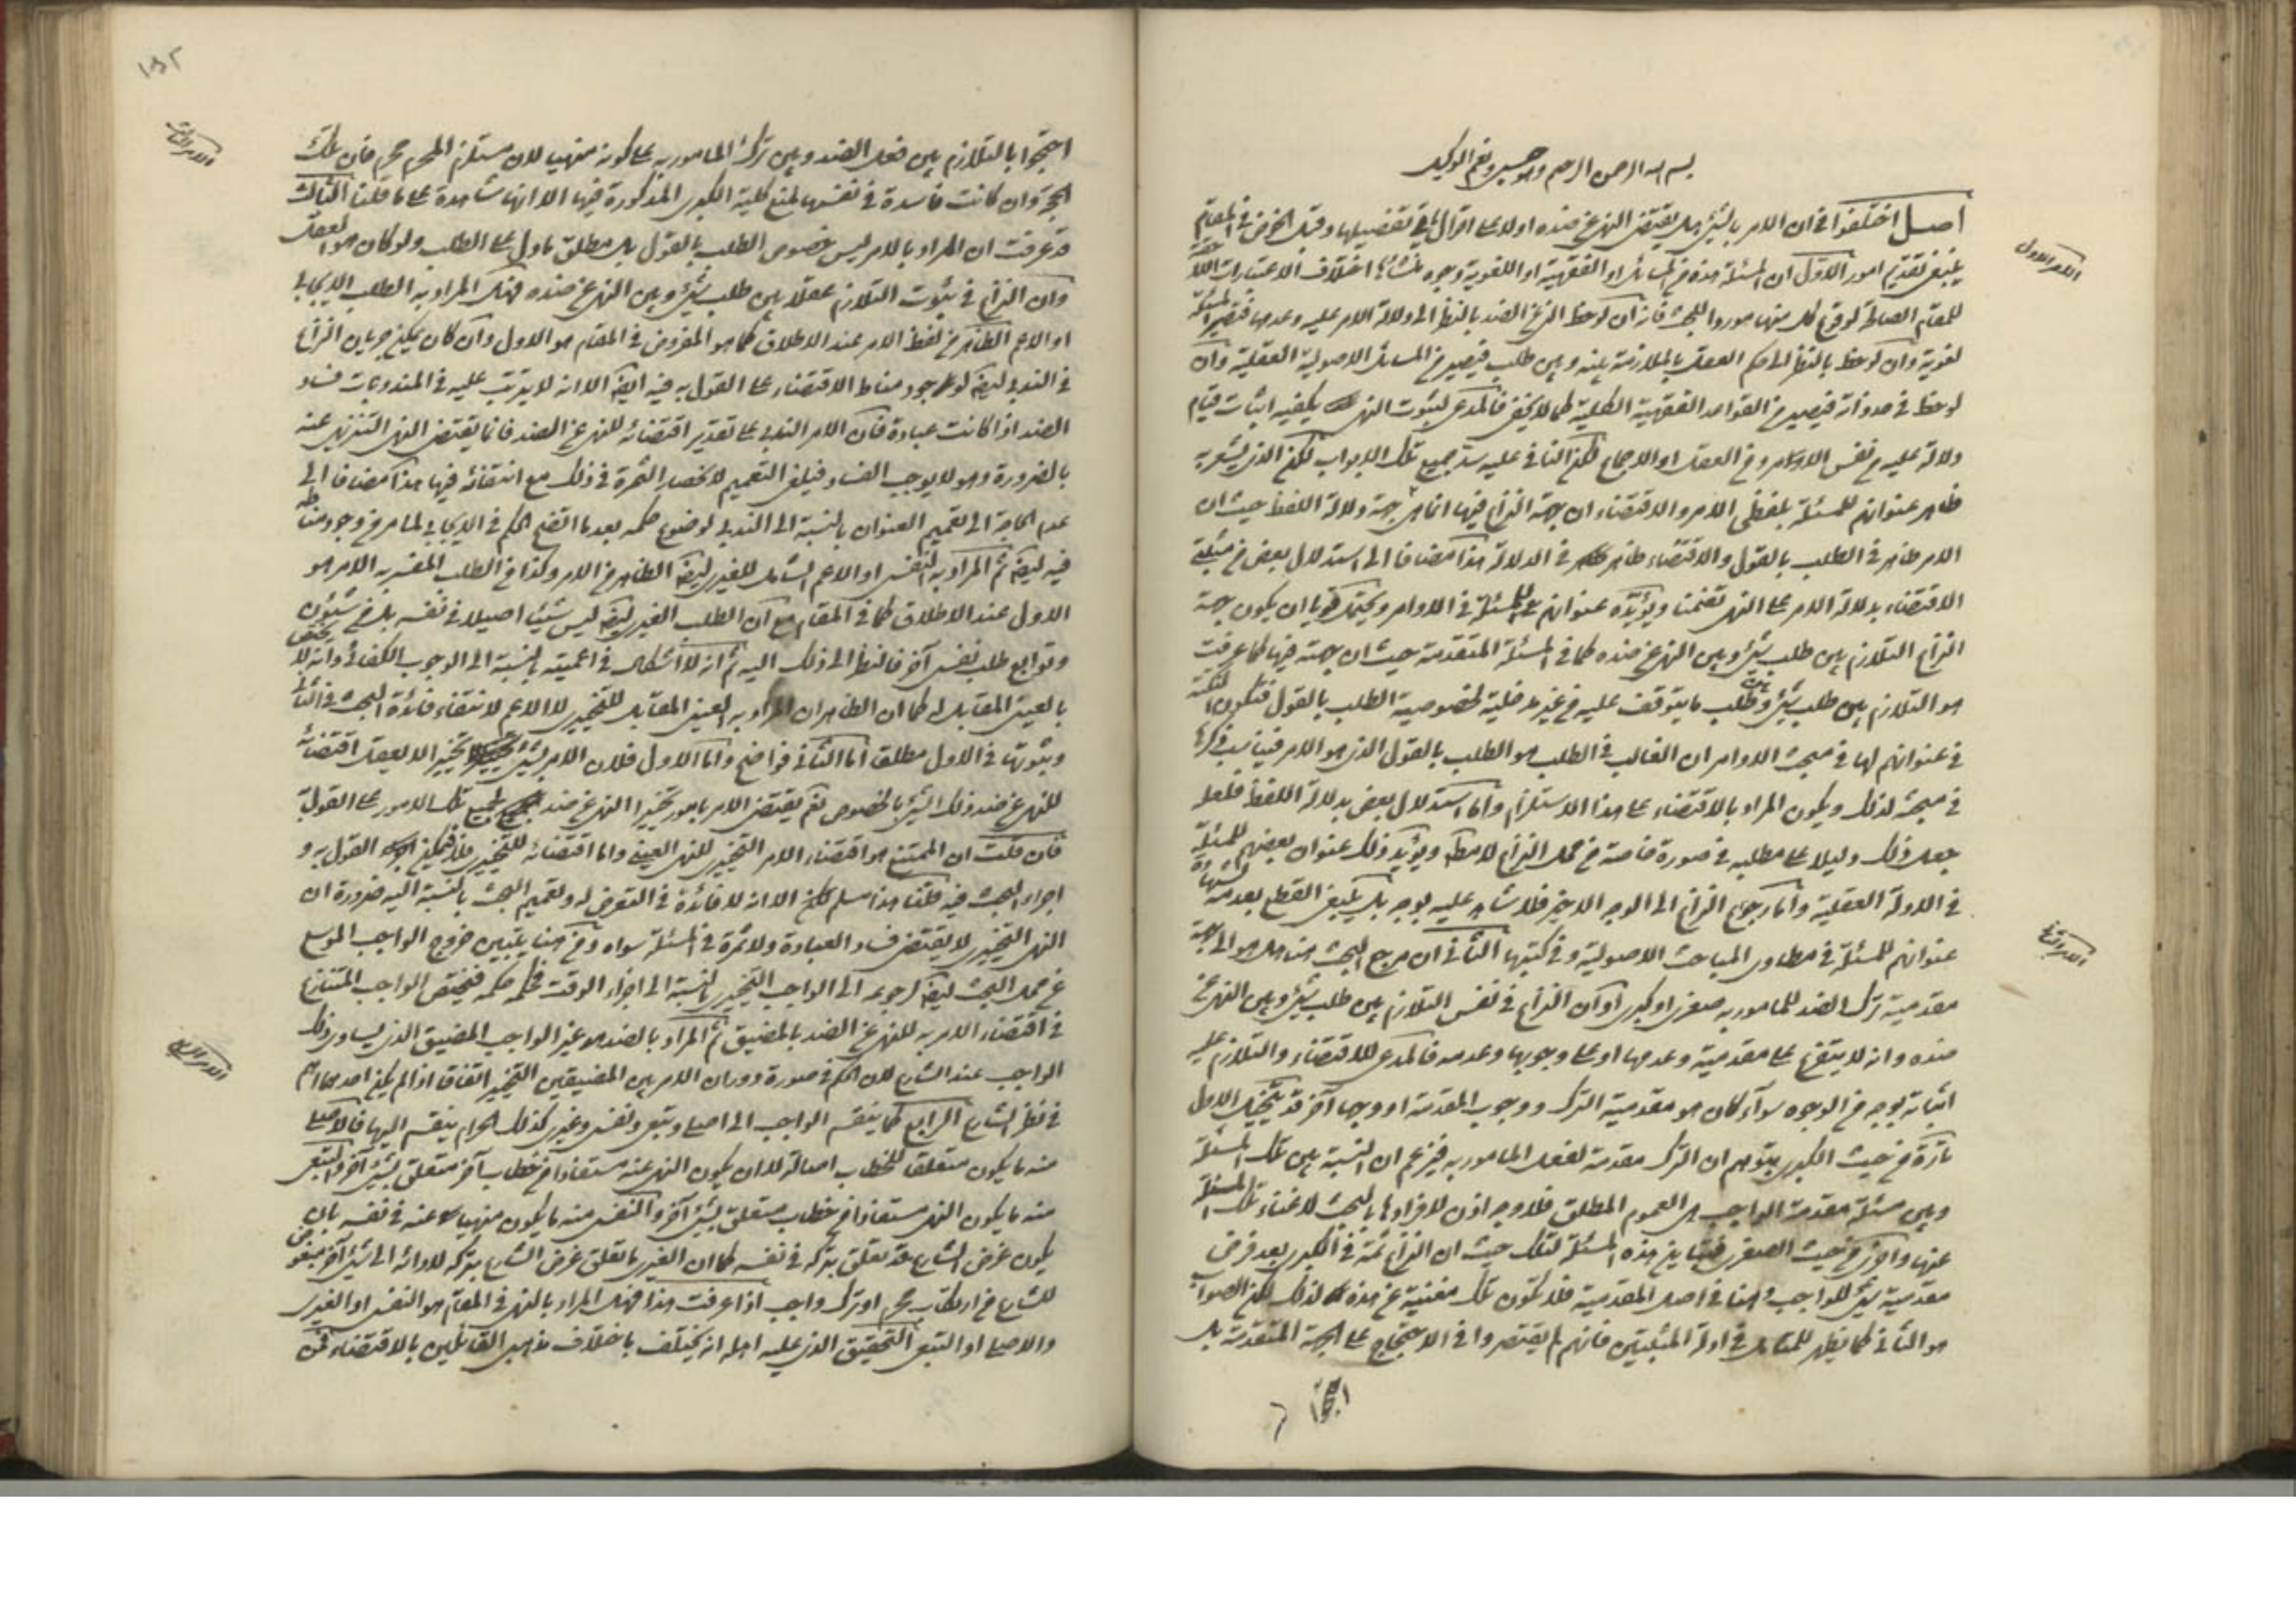 بسم الله الرحمن الرحيم وهو حسبي ونعم الوكيل
أصل اختلفوا في ان الامر بالشيئ هل يقتضي النهي عن ضده اولا على اقوال يأتي تفصيلها وقبل الخوض في المقام
ينبغي تقديم امور الاول ان المسئلة هذه من المسائل او الفقهية او اللغوية وجوه منشائها اختلاف الاعتبارات
للمقام الصالحة لوقوع كل منها موردا للبحث فانه ان لوحظ النهي عن الضد بالنظر الى دلالة الامر عليه وعدمها فتصير المسئلة
لغوية وان لوحظ بالنظر الى حكم العقل بالملازمة بينه وبين طلب فيصير من المسائل الاصولية العقلية وان
لوحظ في حد ذاته فيصير من القواعد الفقهية الكلية كما لا يخفى فالمدعي لثبوت النهي يكفيه اثبات قيام
دلالة عليه من نفس الاوامر ومن العقل او الاجماع لكن النافي عليه سد جميع تلك الابواب لكن الذي يشعر به
ظاهر عنوانهم للمسئلة بلفظي الامر والاقتضاء ان جهة النزاع فيها انما هي جهة دلالة اللفظ حيث ان
الامر ظاهر في الطلب بالقول والاقتضاء ظاهر في الدلالة هذا مضافا الى استدلال بعض من مثبتي
الاقتضاء بدلالة الامر على النهي تضمنا ويؤيده عنوانهم للمسئلة في الاوامر ويحتمل قويا ان يكون جهة
النزاع التلازم بين طلب شيئ وبين النهي عن ضده كما في المسئلة المتقدمة حيث ان جهته فيها كما عرفت
هو التلازم بين طلب شيئ وبين طلب ما يتوقف عليه من غير مدخلية لخصوصية الطلب بالقول فتكون النكتة
في عنوانهم لها في مبحث الاوامر ان الغالب في الطلب هو الطلب بالقول الذي هو الامر فيناسب ذكرها
في مبحثه لذلك ويكون المراد بالاقتضاء على هذا الاستلزام واما استدلال بعض بدلالة اللفظ فلعله
جعل ذلك دليلا على مطلبه في صورة خاصة من محل النزاع لا مط ويؤيد ذلك عنوان بعضهم للمسئلة
في الادلة العقلية واما رجوع النزاع الى الوجه الاخير فلا شاهد عليه بوجه بل ينبغي القطع بعدمه بشهادة
عنوانهم للمسئلة في مطاوي المباحث الاصولية وفي كتبها الثاني ان مرجع البحث هنا هل هو الى جهة
مقدمية ترك الضد للمامور به صغرى او كبرى او ان النزاع في نفس التلازم بين طلب شيئ وبين النهي عن
ضده وانه لا يبتني على مقدمية وعدمها او على وجوبها وعدمه فالمدعي للاقتضاء والتلازم عليه
اثباته بوجه من الوجوه سواء كان هو مقدمية الترك ووجوب المقدمة او وجها آخر قد يتخيل الاول
تارة من حيث الكبرى بتوهم ان الترك مقدمة لفعل المامور به فيزعم ان النسبة بين تلك المسئلة
وبين مسئلة مقدمة الواجب هي العموم المطلق فلا وجه اذن لافرادها بالبحث لاغناء تلك المسئلة
عنها واخرى من حيث الصغرى فيتمايز هذه المسئلة لتلك حيث ان النزاع ثمة في الكبرى بعد فرض
مقدمية شيئ للواجب وهنا في اصل المقدمية فلا تكون تلك مغنية عن هذه لذلك لكن الصواب
هو الثاني كما يظهر للمتأمل في ادلة المثبتين فانهم لم يقتصروا في الاحتجاج على الجهة المتقدمة بل
احتجوا
الامر الاول
الامر الثاني
١٥٢
احتجوا بالتلازم بين فعل الضد وبين ترك المامور به على كونه منهيا لان مستلزم المحرم محرم فان تلك
الحجة وان كانت فاسدة في نفسها لمنع كلية الكبرى المذكورة فيها الا انها شاهدة على ما قلنا الثالث
قد عرفت ان المراد بالامر ليس خصوص الطلب بالقول بل مطلق ما دل على الطلب ولو كان هو العقل
وان النزاع في ثبوت التلازم عقلا بين طلب شيئ وبين النهي عن ضده فهل المراد به الطلب الايجابي
او الاعم الظاهر من لفظ الامر عند الاطلاق كما هو المفروض في المقام هو الاول وان كان يمكن جريان النزاع
في الندبي ايضا لوجود مناط الاقتضاء على القول به فيه ايضا الا انه لا يترتب عليه في المندوبات فساد
الضد اذا كانت عبادة فان الامر الندبي على تقدير اقتضائه للنهي عن الضد فانما يقتضي النهي التنزيهي عنه
بالضرورة وهو لا يوجب الفساد فيلغى التعميم لانحصار الثمرة في ذلك مع انتفائه فيها هذا مضافا الى
عدم الحاجة الى تعميم العنوان بالنسبة الى الندبي لوضوح حكمه بعد ما اتضح الحكم في الايجابي لما مر من وجود مناطه
فيه ايضا ثم المراد به النفسي او الاعم الشامل للغيري ايضا الظاهر من الامر وكذا من الطلب المفسر به الامر هو
الاول عند الاطلاق كما في المقام مع ان الطلب الغيري ليس شيئا اصيلا في نفسه بل من شئون
وتوابع طلب نفسي آخر فالنظر الى ذلك اليه ثم انه لا اشكال في اعميته بالنسبة الى الوجوب الكفائي وانه لا يختص
بالعيني المقابل له كما ان الظاهر ان المراد به العيني المقابل للتخييري لا الاعم لانتفاء فائدة البحث في الثاني
وثبوتها في الاول مطلقا اما الثاني فواضح واما الاول فلان الامر بشيئ تخييرا لا يعقل اقتضائه
للنهي عن ضد ذلك الشيئ بالخصوص نعم يقتضي الامر بامور تخييرا النهي عن ضد جميع تلك الامور على القول به
فان قلت ان الممتنع هو اقتضاء الامر التخييري للنهي العيني واما اقتضائه للتخييري فلا فيمكن القول به و
اجراء البحث فيه قلنا هذا مسلم لكن الا انه لا فائدة في التعرض له وتعميم البحث بالنسبة اليه ضرورة ان
النهي التخييري لا يقتضي فساد العبادة ولا ثمرة في المسئلة سواه ومن هنا يتبين خروج الواجب الموسع
عن محل البحث ايضا لرجوعه الى الواجب التخييري بالنسبة الى اجزاء الوقت فحكمه حكمه فيختص الواجب المتنازع
في اقتضاء الامر به للنهي عن الضد بالمضيق ثم المراد بالضد هو غير الواجب المضيق الذي يساوي ذلك
الواجب عند الشارع لان الحكم في صورة دوران الامر بين المضيقين التخيير اتفاقا اذا لم يكن احدهما اهم
في نظر الشارع الرابع كما ينقسم الواجب الى اصلي وتبعي ونفسي وغيري كذلك الحرام ينقسم اليها فالاصلي
منه ما يكون متعلقا للخطاب اصالة لا ان يكون النهي عنه مستفادا من خطاب آخر متعلق بشيئ آخر والتبعي
منه ما يكون النهي مستفادا من خطاب متعلق بشيئ آخر والنفسي منه ما يكون منهيا عنه في نفسه بان
يكون غرض الشارع قد تعلق بتركه في نفسه كما ان الغيري ما تعلق غرض الشارع بتركه لادائه الى شيئ آخر مبغوض
للشارع من ارتكاب محرم او ترك واجب اذا عرفت هذا فهل المراد بالنهي في المقام هو النفسي او الغيري
والاصلي او التبعي التحقيق الذي عليه اهله انه يختلف باختلاف مذهبي القائلين بالاقتضاء فمن
الامر الثالث
الامر الرابع